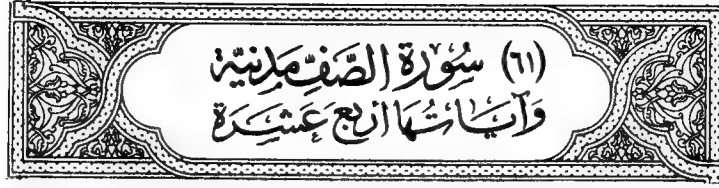 (٦١) سُورَة الصَّفِّ مَدَنِيَّة
وَآيَاتُهَا أَرْبَع عَشَرَة